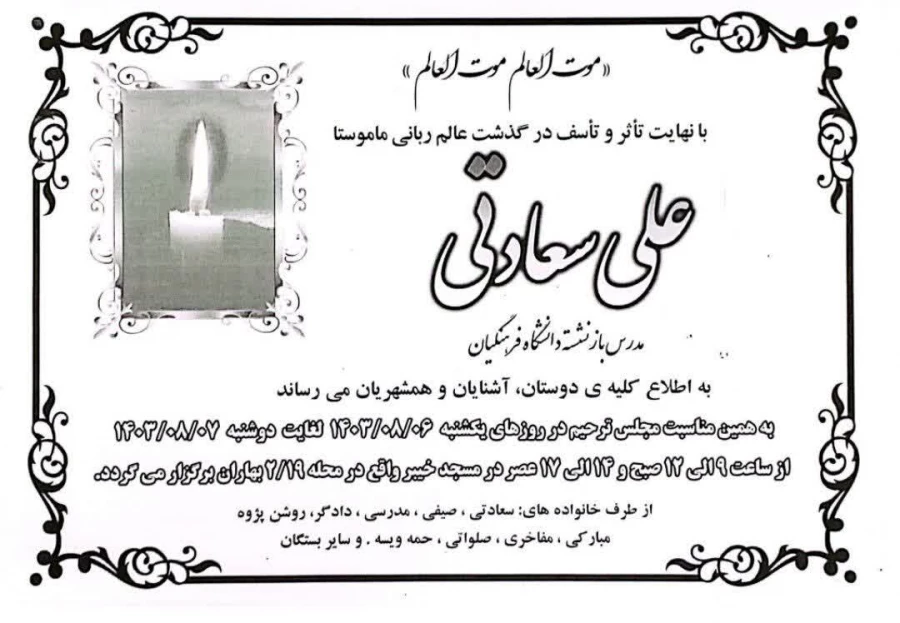 «موت العالم موت العالم»
با نهایت تأثر و تأسف در گذشت عالم ربانی ماموستا
علی سعادتی
مدرس بازنشسته دانشگاه فرهنگیان
به اطلاع کلیه ی دوستان، آشنایان و همشهریان می رساند
به همین مناسبت مجلس ترحیم در روزهای یکشنبه ۱۴۰۳/۰۸/۰۶ لغایت دوشنبه ۱۴۰۳/۰۸/۰۷
از ساعت ۹ الی ۱۲ صبح و ۱۴ الی ۱۷ عصر در مسجد خیبر واقع در محله ۲/۱۹ بهاران برگزار می گردد.
از طرف خانواده های: سعادتی ، صیفی ، مدرسی ، دادگر، روشن پژوه
مبارکی ، مفاخری ، صلواتی ، حمه ویسه . و سایر بستگان